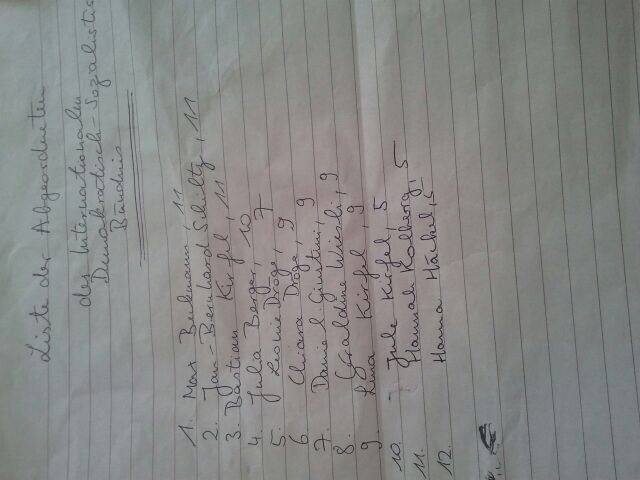 Liste der Abgeordneten
des Internationalen
Demokratisch-Sozialistis
Bündnis
1. Max Beckmann, 11
2. Jan-Bernhard Schultz, 11
3. Bastian Kiefel, 11
4. Jula Berger, 10
5. Leonie Dröge, 7
6 Chiara Dröge, 9
7. Daniel Giustini, 9
8. Geraldine 9
9. Luna Kiefel, 9
10. Jule Kiefel, 5
11. Hannah Kolberg, 5
12. Hanna Häckel, 5